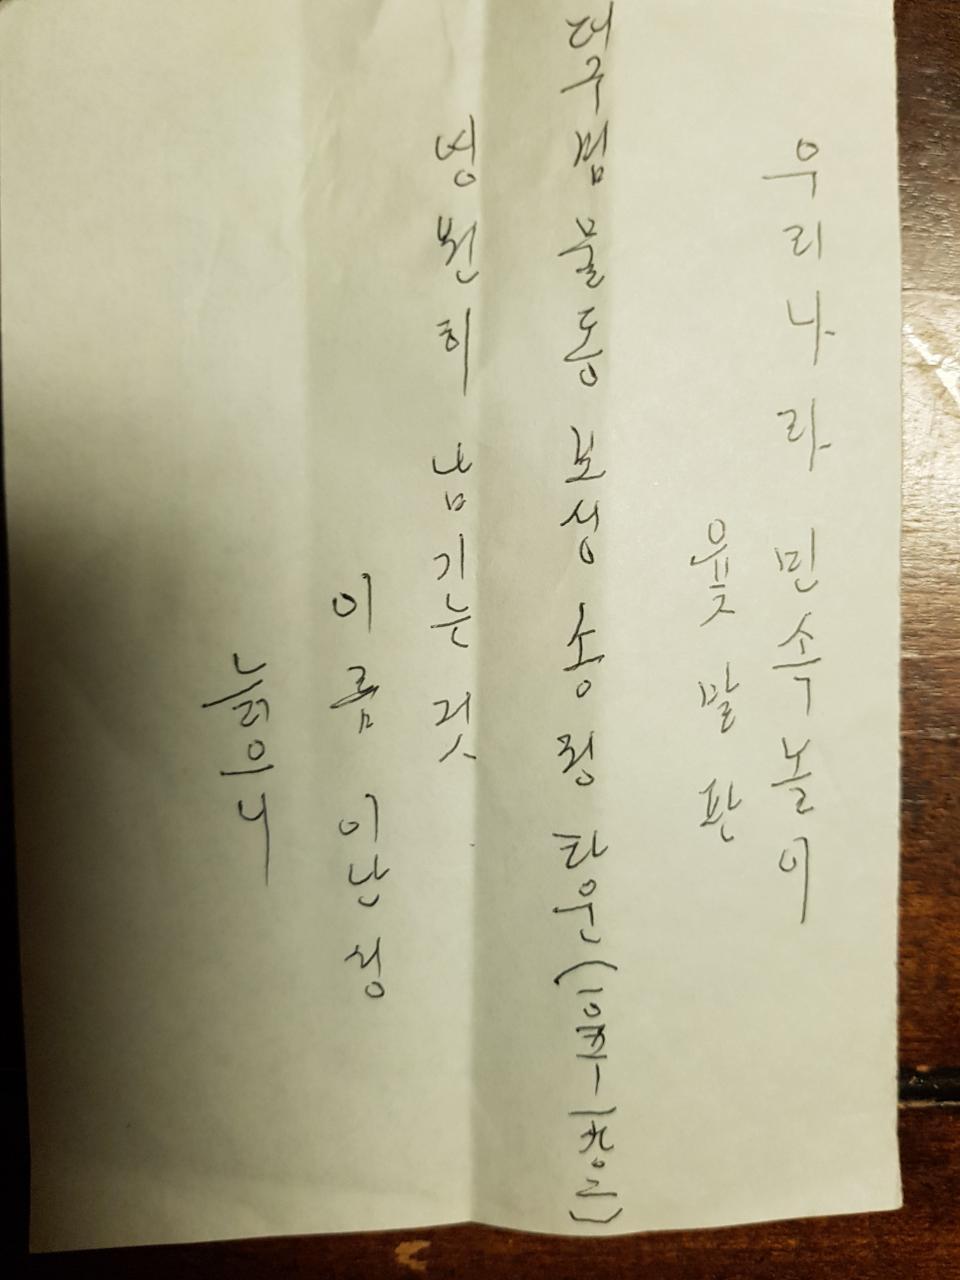 우리나라 민속놀이
윷 말 판
대구 범물동 보성 송정 타운
영원히 남기는 것
이름 이난정
늙으니